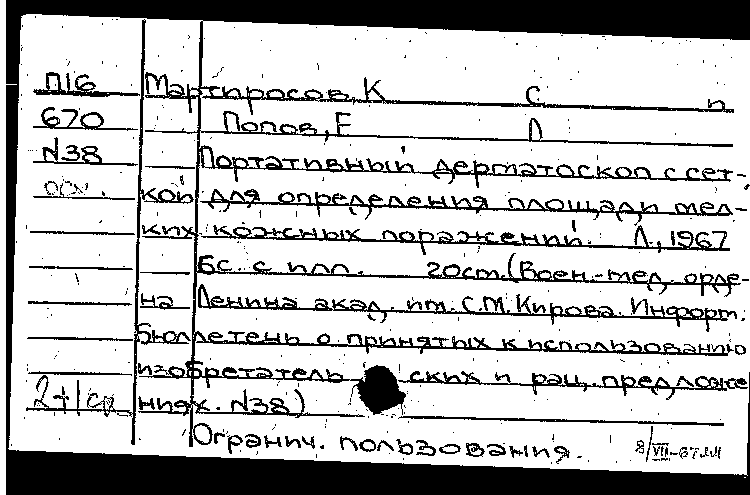 П16 Мартиросов, К С п
670 Попов, Е Л
N38 Портативный дерматоскоп с сет-
осн. кой для определения площади мел-
ких кожных поражений. Л., 1967
6с. с илл. 20см. (Воен.-мед. орде-
на Ленина акад. им. С.М. Кирова. Информ.
бюллетень о принятых к использованию
изобретатель ских и рац. предложе
2+1ср ниях. N38)
Огранич. пользования. 8/VII-67